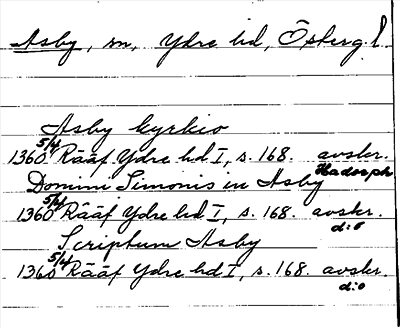 Asby, sn, Ydre hd, Östergl
Asby kyrkio
1360 5/4 Rääf Ydre hd I, s. 168. avskr. Hadorph
Domini Simonis in Asby
1360 5/4 Rääf Ydre hd I, s. 168. avskr. d:o
Scriptum Asby
1360 5/4 Rääf Ydre hd I, s. 168. avskr. d:o